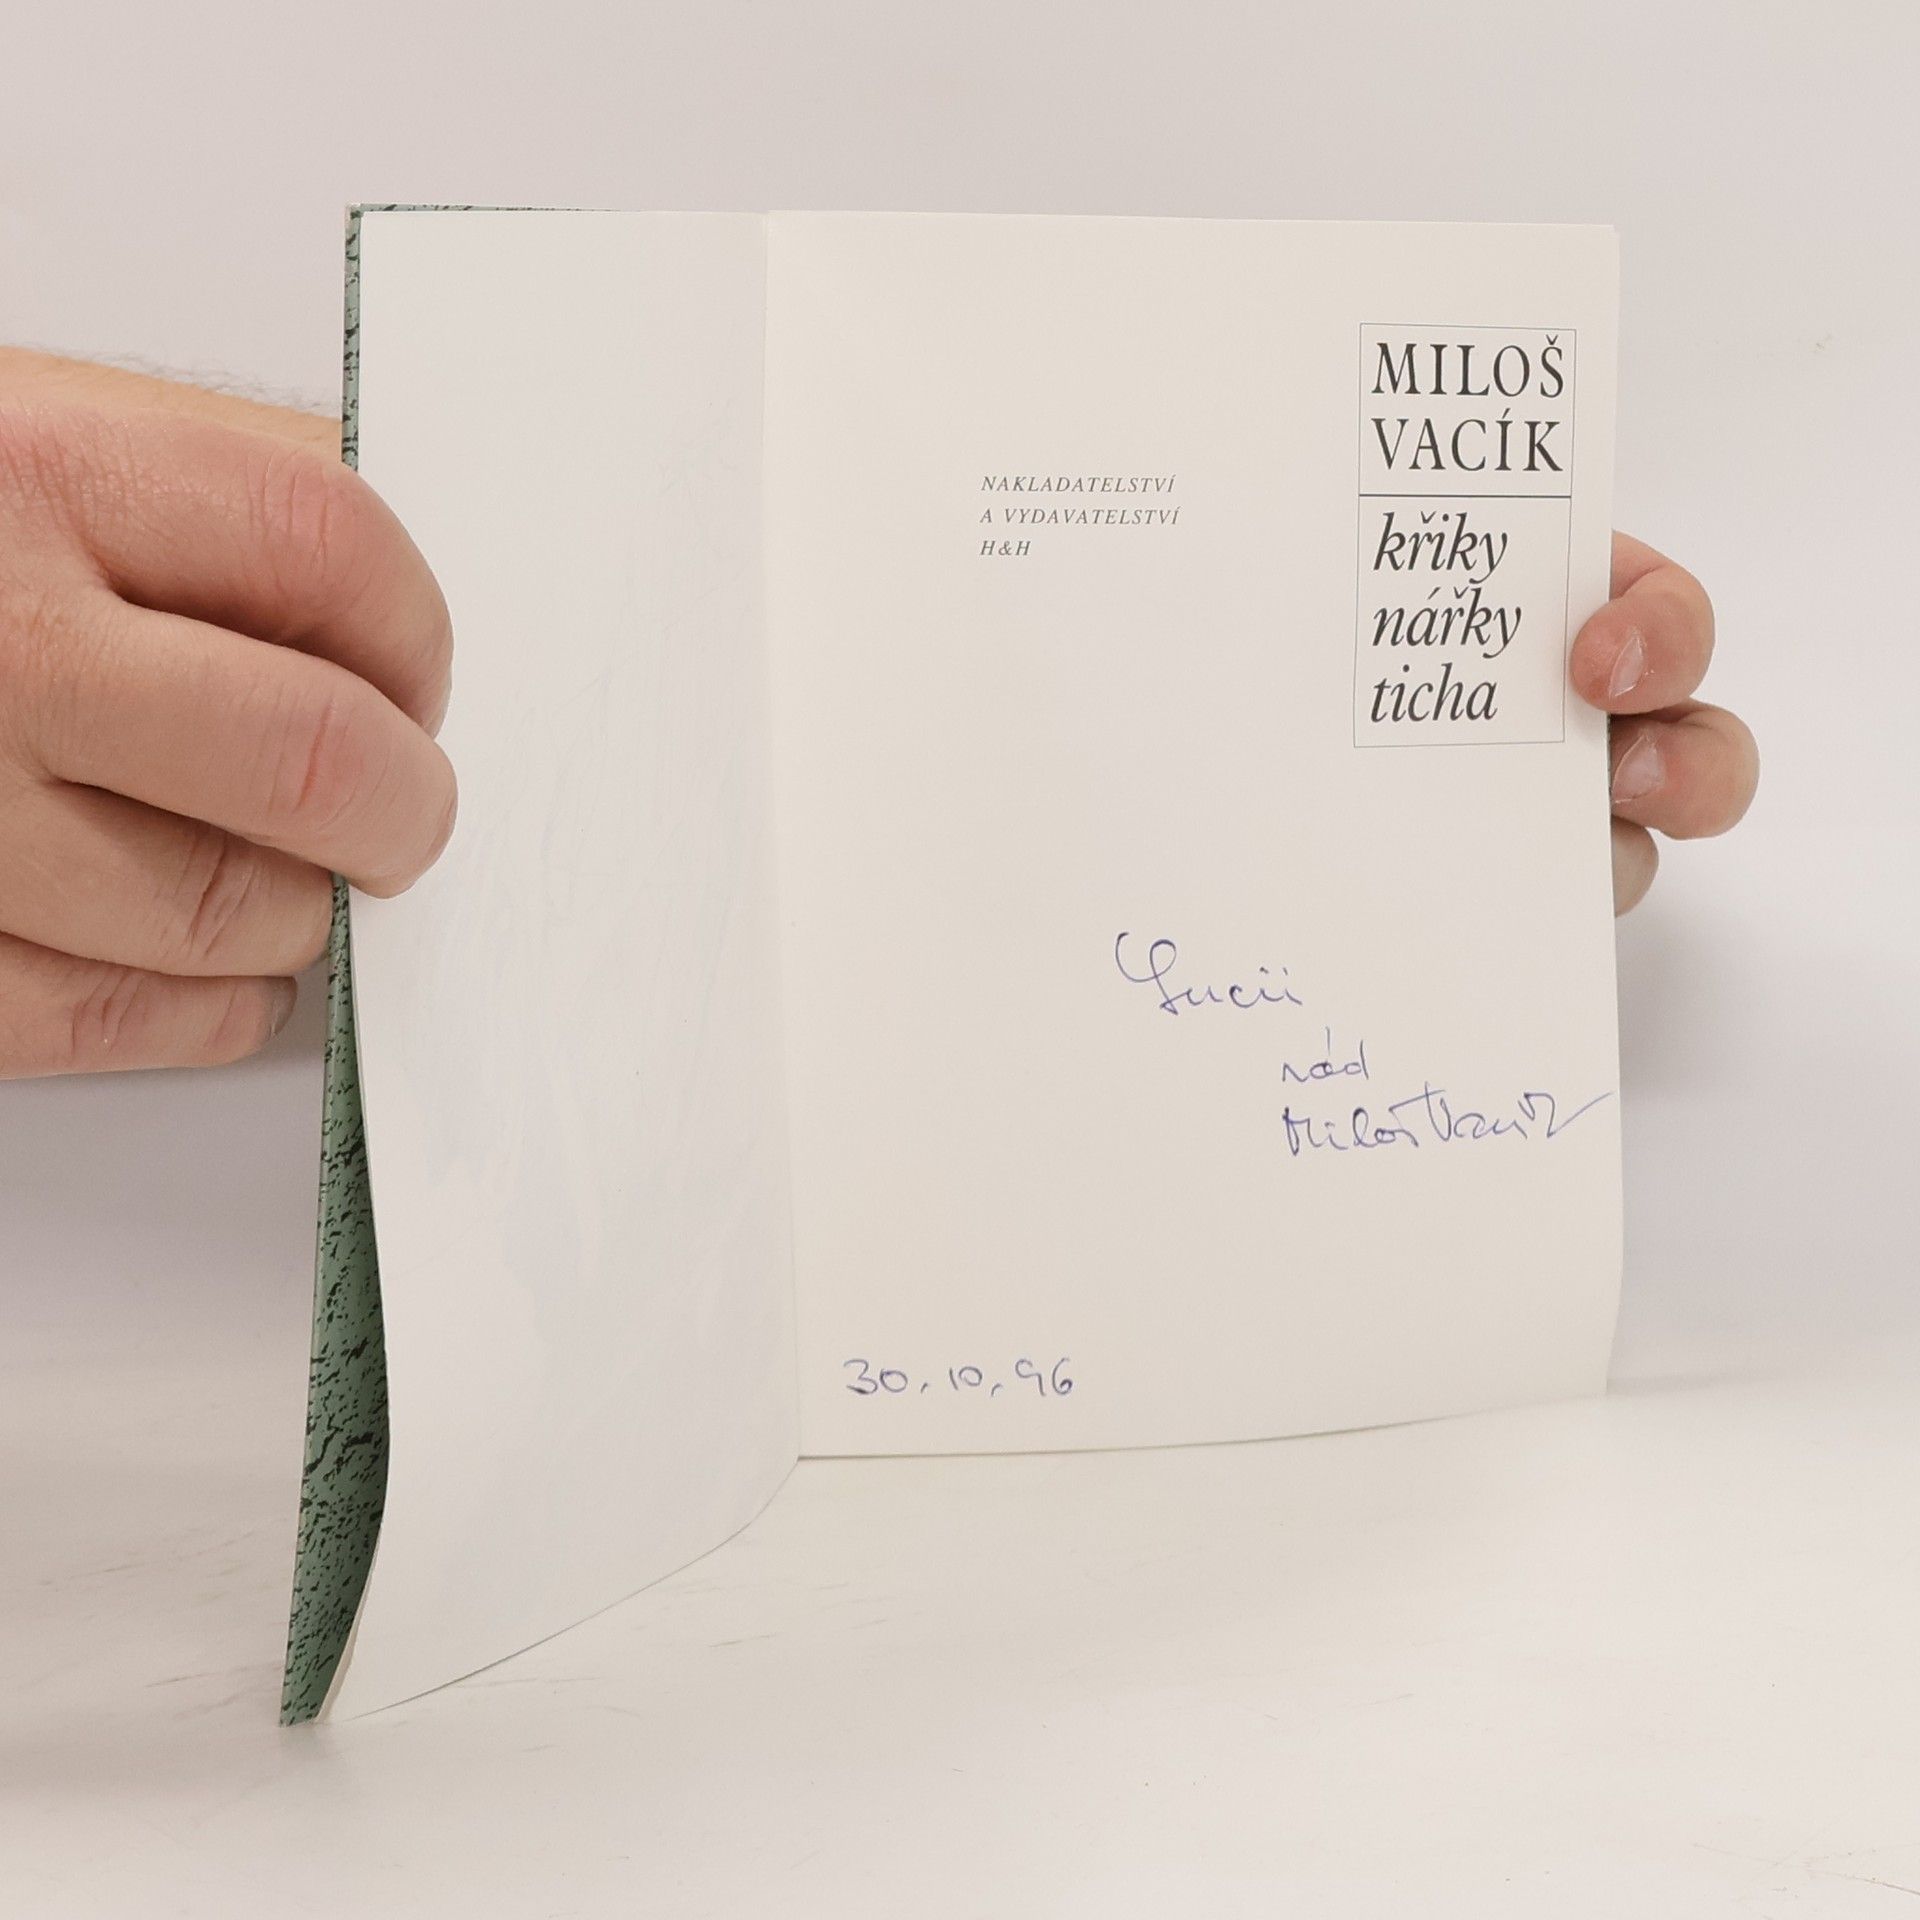 MILOŠ
VACÍK
křiky
nářky
ticha
NAKLADATELSTVÍ
A VYDAVATELSTVÍ
H&H
Lucii
rád
Miloš Vacík
30.10.96